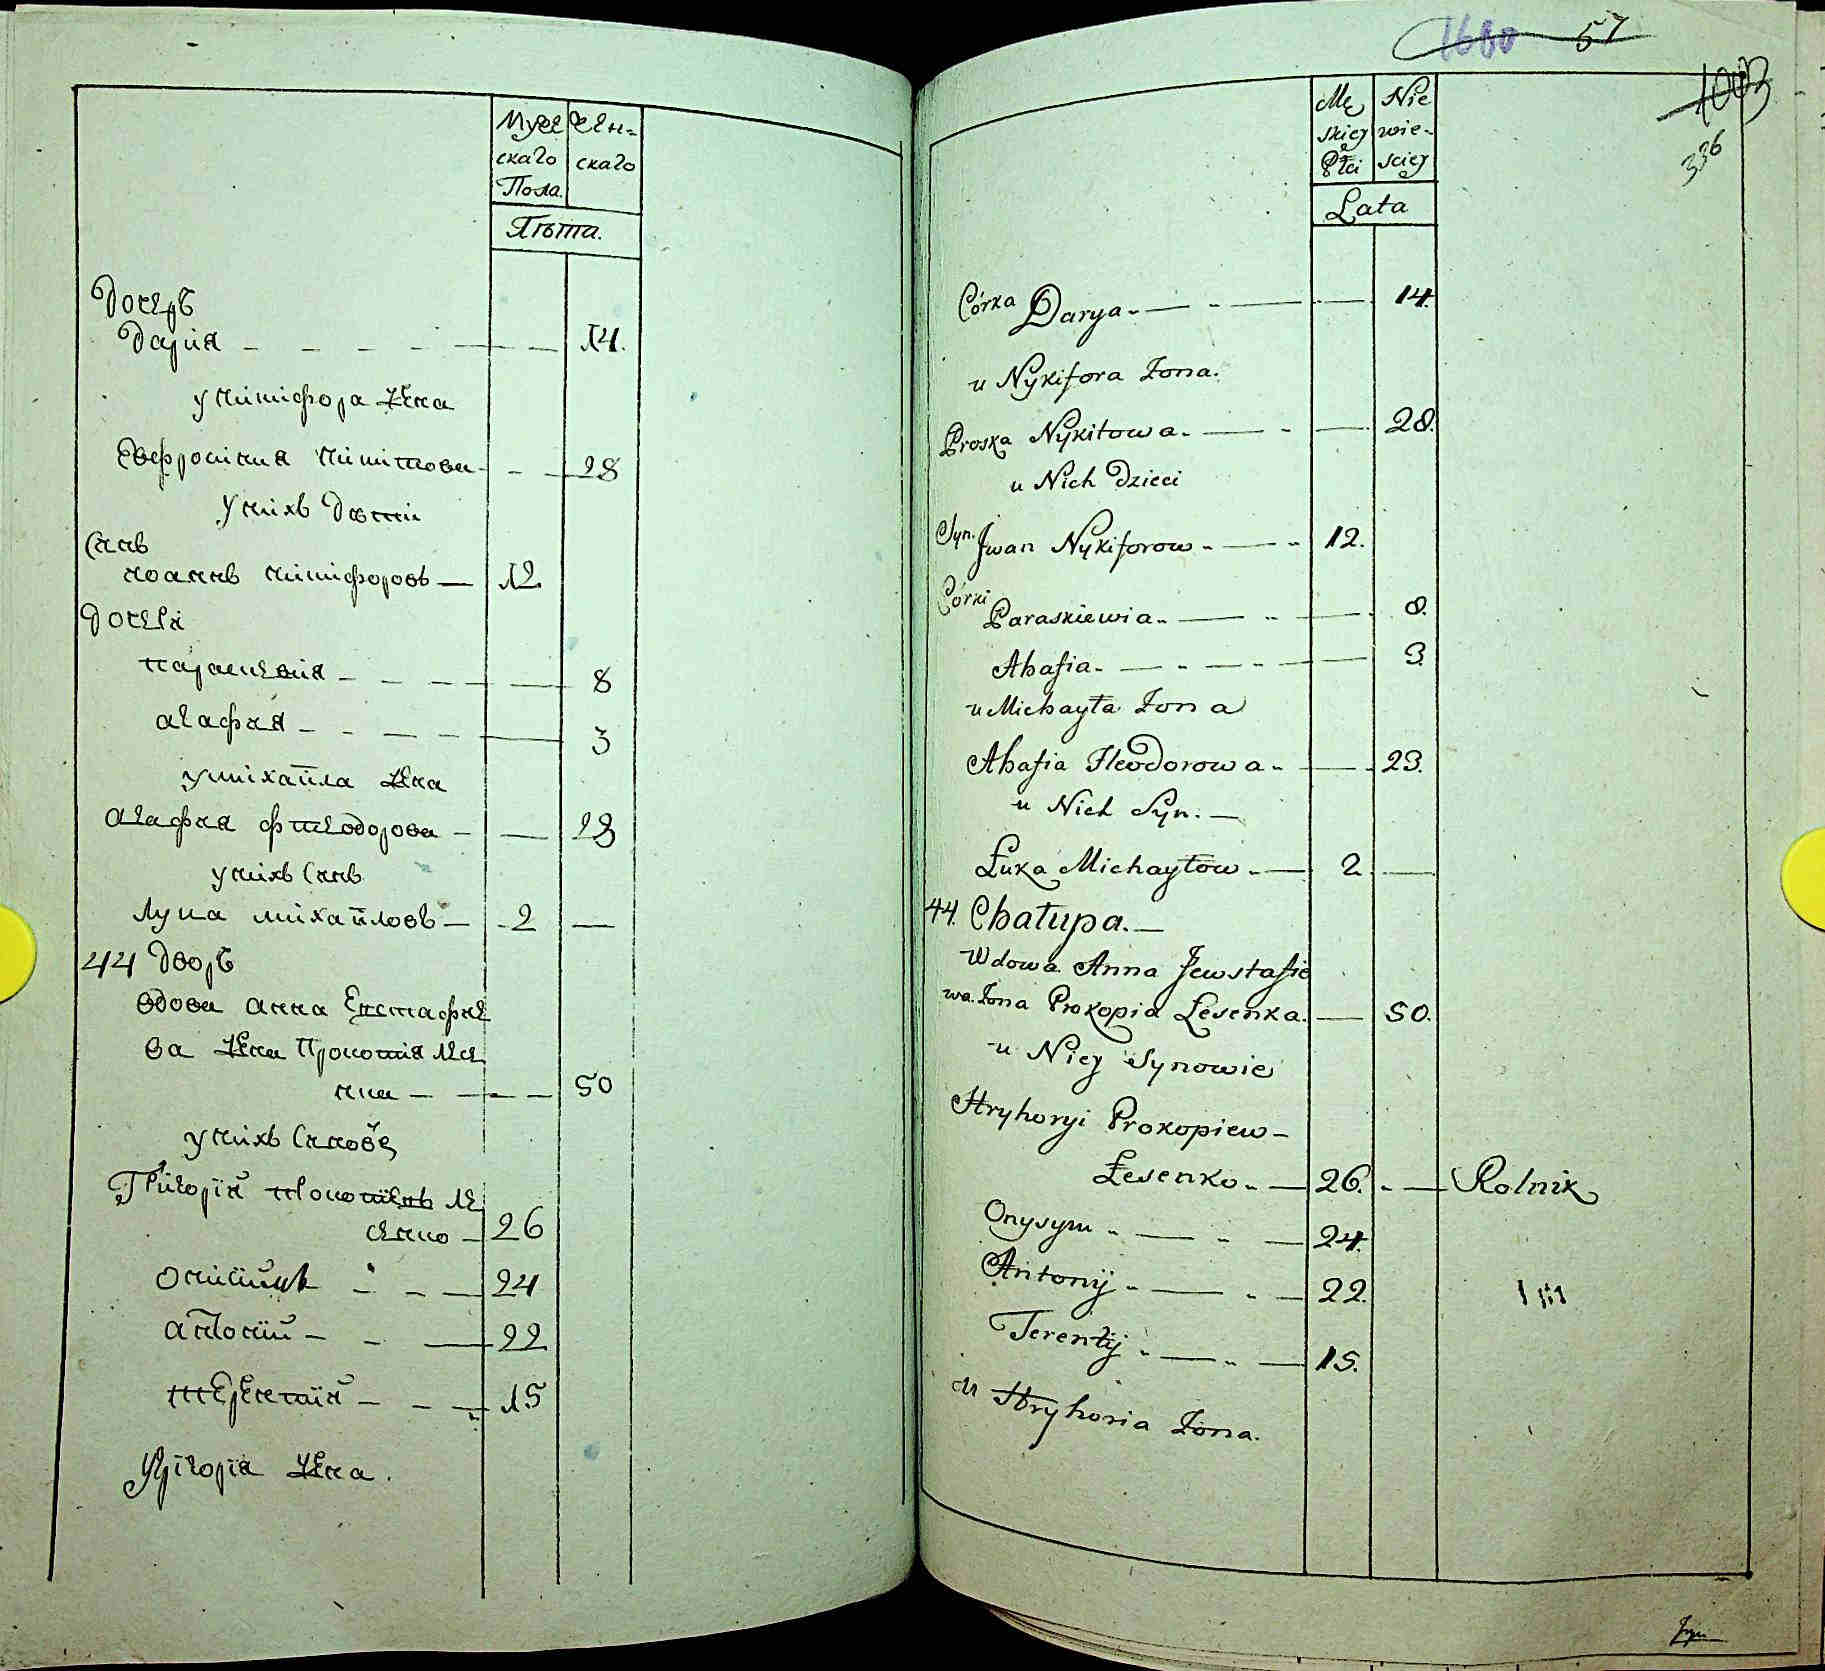 Мужескаго Пола
Женскаго
Лѣта.
Дочерь
Дарія 14.
у никифора жена
Евфросинія никитова 28
У нихъ дѣти
Сынъ
иоаннъ никифоровъ 12
Дочери
параскевия 8
агафия 3
у михайла жена
агафия фтеодорова 23
у нихъ Сынъ
Лука михайловъ 2
44 Дворъ
вдова анна Евстафие
ва жена Прокопія Лесе
нка 50
у нихъ Синове
Григорїй прокопиевъ Ле
сенко 26
онисимъ 24
антонїй 22
терентїй 15
У григорїя жена.
1680 57
1003
336
Mę
skiey
Płci
Nie
wie-
sciey
Lata
Córka Darya 14.
u Nykifora Żona.
Proska Nykitowa. 28.
u Nich Dzieci
Syn. Jwan Nykiforow 12.
Córki
Paraskiewia 8.
Ahafia 3.
u Michayła Żona
Ahafia Fteodorowa 23.
u Nich Syn.
Łuka Michayłow 2.
44. Chałupa.
Wdowa Anna Jewstafie
wa. Żona Prokopia Łesenka. 50.
u Niey Synowie
Hryhoryi Prokopiew
Łesenko 26. Rolnik
Onysym 24.
Antonij 22.
Terentij 15.
u Hryhoria Żona.